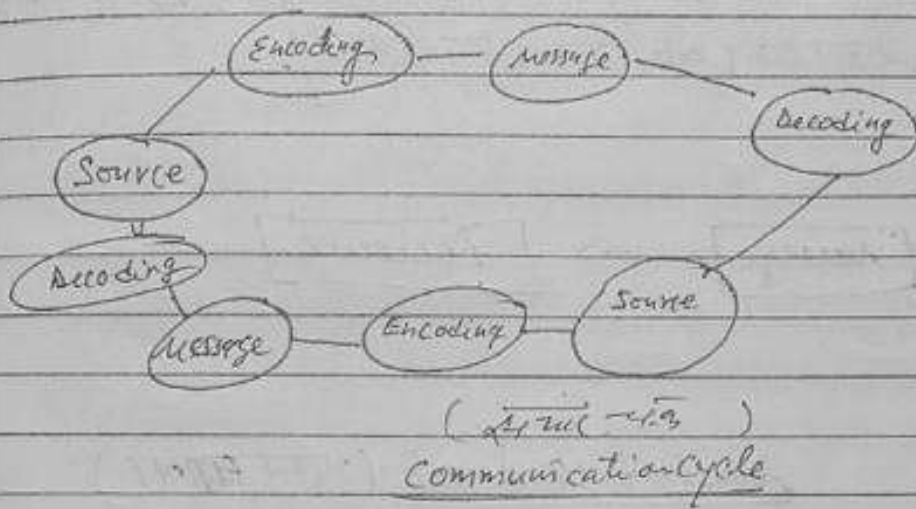 Encoding
Message
Decoding
Source
Decoding
Message
Encoding
Source
Communication Cycle